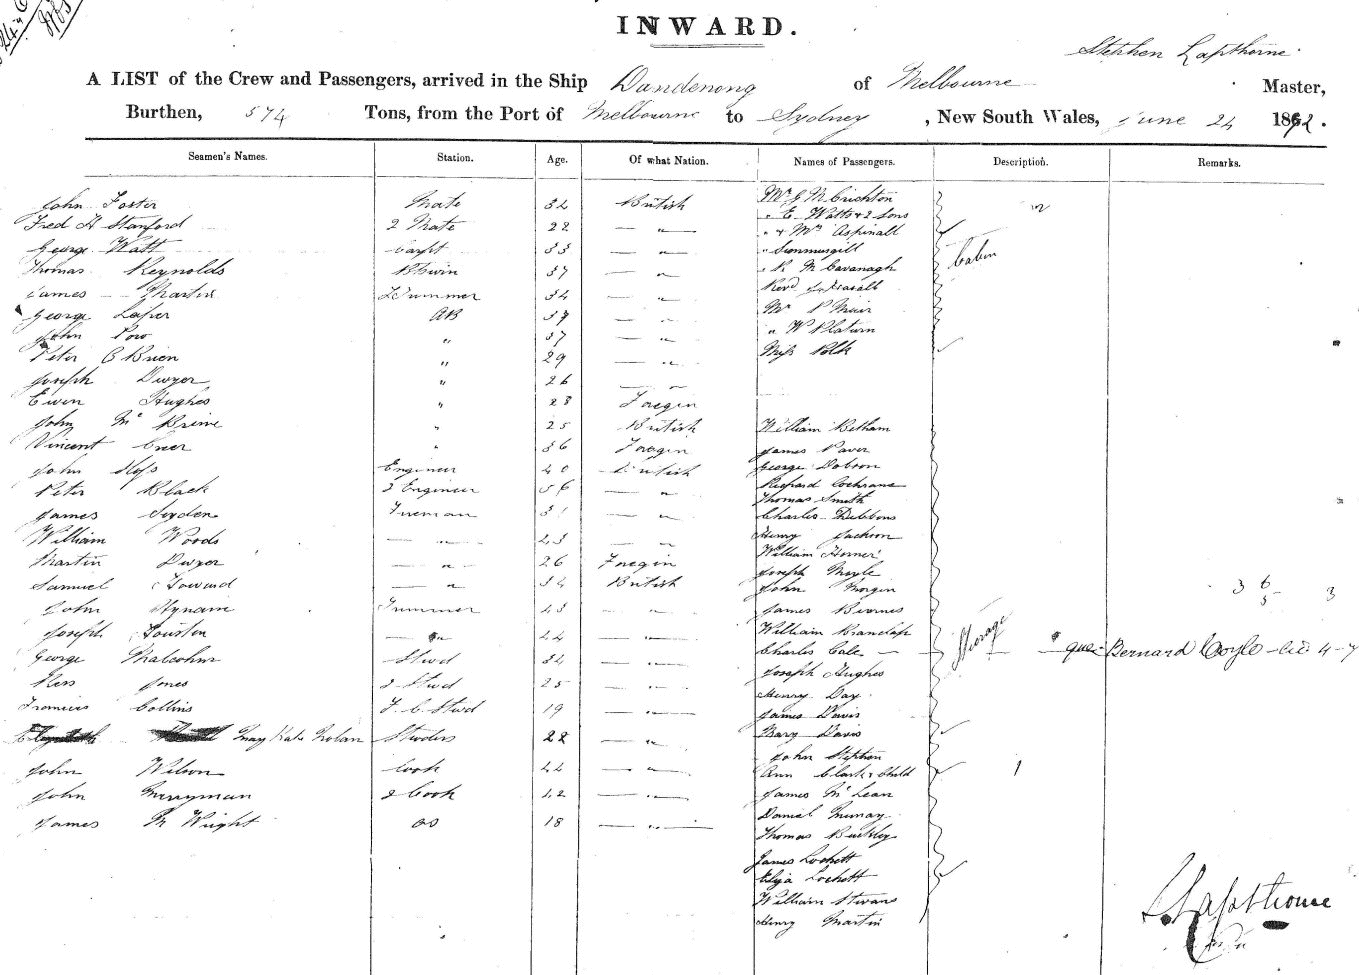 INWARD.
Stephen Lapthorne
A LIST of the Crew and Passengers, arrived in the Ship Dandenong of Melbourne Master,
Burthen, 574 Tons, from the Port of Melbourne to Sydney, New South Wales, June 24 1872.
Seamen's Names. Station. Age. Of what Nation. Names of Passengers. Description. Remarks.
John Foster Mate 34 British
Fred H Stanford 2 Mate 22 — " —
George Watt Carpt 33 — " —
Thomas Reynolds 37 — " —
James Martin 34 — " —
George Laper AB 37 — " —
John Pow " 37 — " —
Peter O Brien " 29 — " —
Joseph Dwyer " 26 — " —
Ewen Hughes " 28 Foregin
John Mc Brine " 25 British
Vincent " 36 Foregin
John Engineer 40 British
Peter Black 2 Engineer 56 — " —
James Fireman — " —
William Woods — " — 43 — " —
Martin Dwyer — " — 26 Foregin
Samuel Howard — " — 34 British
John Hynam Trimmer 43 — " —
Joseph Fourster — " — 44 — " —
George Malcohm Stwd 34 — " —
Jones 2 Stwd 25 — " —
Francis Collins F. C. Stwd 19 — " —
May Kate Nolan Stwdes 22 — " —
John Wilson Cook 44 — " —
John Merryman 2 Cook 42 — " —
James M Wright OS 18 — " —
Mr G M Crichton
" E Watts & 2 Sons
" & Mrs Aspinall
"
" R M Cavanagh
Revd
Mr P Muir
" W
Miss Polk
Cabin
William Betham
James Paver
George Dobson
Richard Cochrane
Thomas Smith
Charles Dibbons
Henry Jackson
William Horner
Joseph Moyle
John Morgin
James Bearnes
William
Charles Cale
Joseph Hughes
Henry Day
James Davis
Mary Davis
John Stephen
Ann Clark & Child
James Mc Lean
Daniel Murray
Thomas Buckley
James Lockett
Eliza Lockett
William Stevens
Henry Martin
Sterage
3 6 3
5
Bernard Coyle
1
S Lapthorne